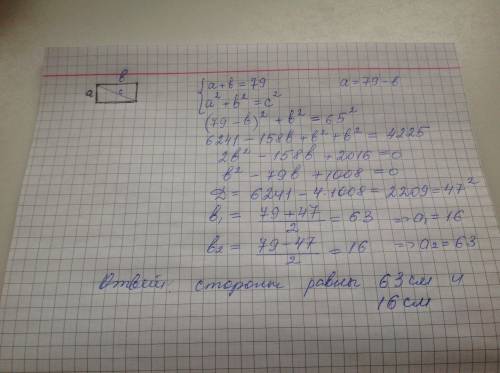 в
а с
{ а+в=79 а=79-в
а² + в² = с²
(79-в)² + в² = 65²
6241-158в+в²+в² = 4225
2в² - 158в + 2016 = 0
в² - 79в + 1008 = 0
D = 6241 - 4·1008 = 2209 = 47²
в₁ = (79+47)/2 = 63 => а₁ = 16
в₂ = (79-47)/2 = 16 => а₂ = 63
Ответ: стороны равны 63 см и
16 см